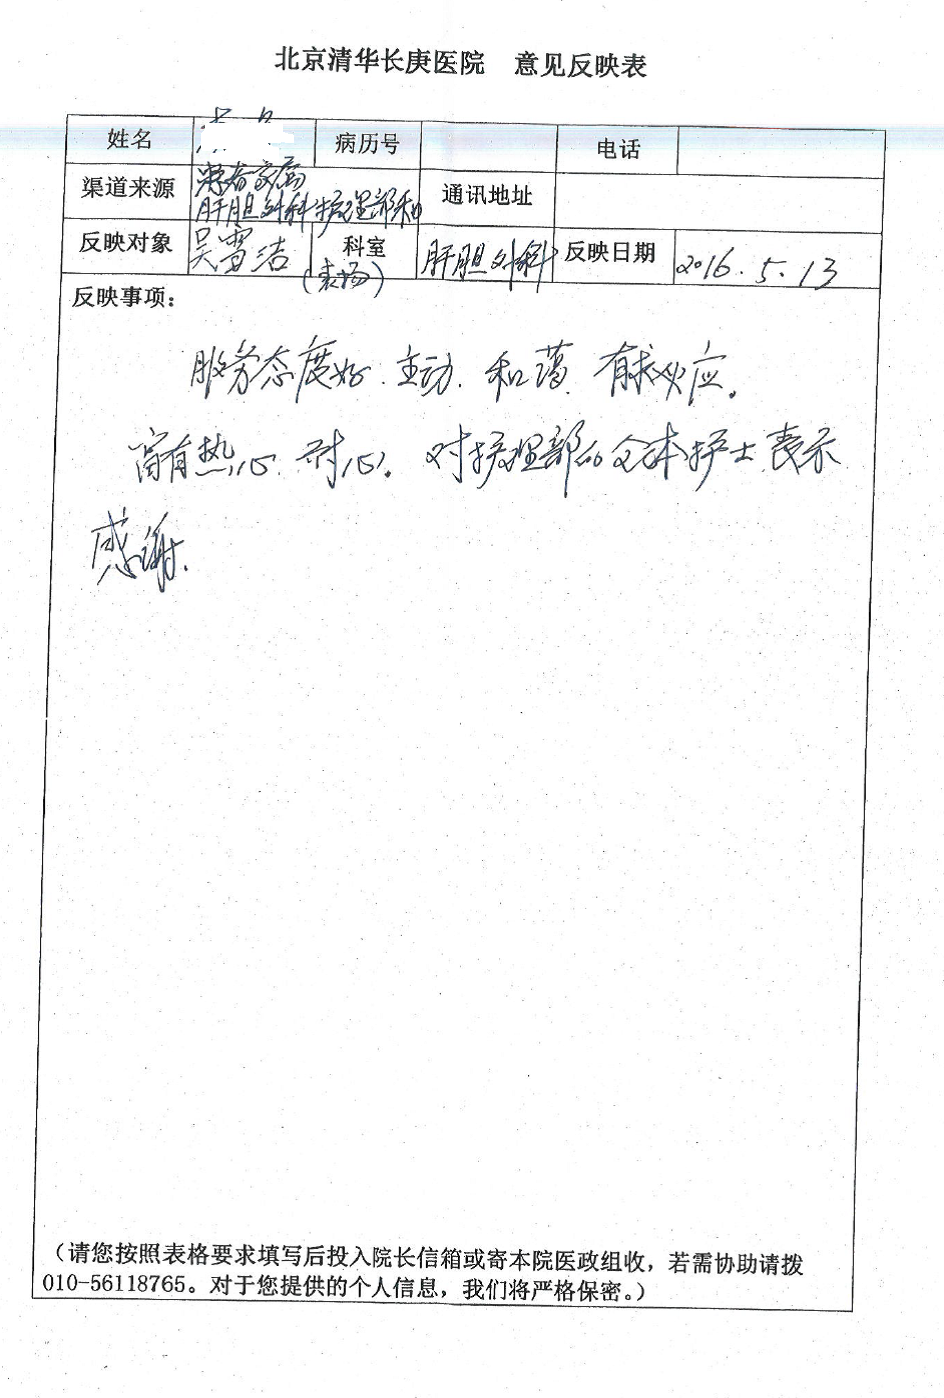 北京清华长庚医院 意见反映表
姓名 病历号 电话
渠道来源 患者家属 通讯地址
肝胆外科护理部
反映对象 吴雪洁 科室 肝胆外科 反映日期 2016.5.13
(表扬)
反映事项：
服务态度好.主动.和蔼.有求必应.
富有热心.耐心.对护理部的全体护士表示
感谢.
（请您按照表格要求填写后投入院长信箱或寄本院医政组收，若需协助请拨
010-56118765。对于您提供的个人信息，我们将严格保密。）